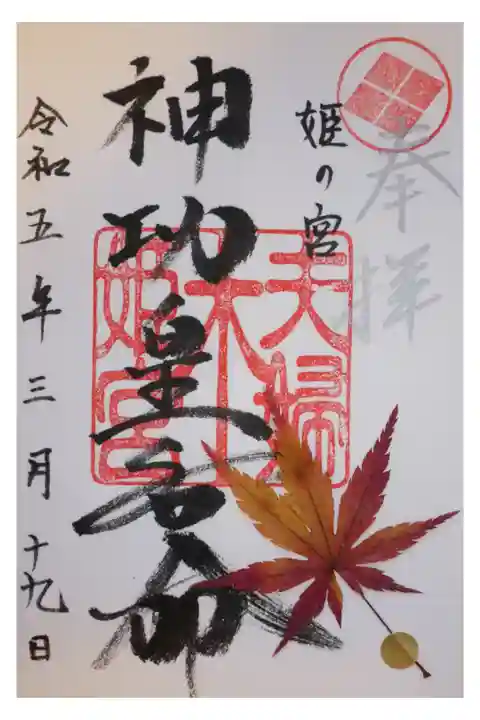 奉拝
姫の宮
神功皇后命
令和五年三月十九日
夫婦
木
姫宮